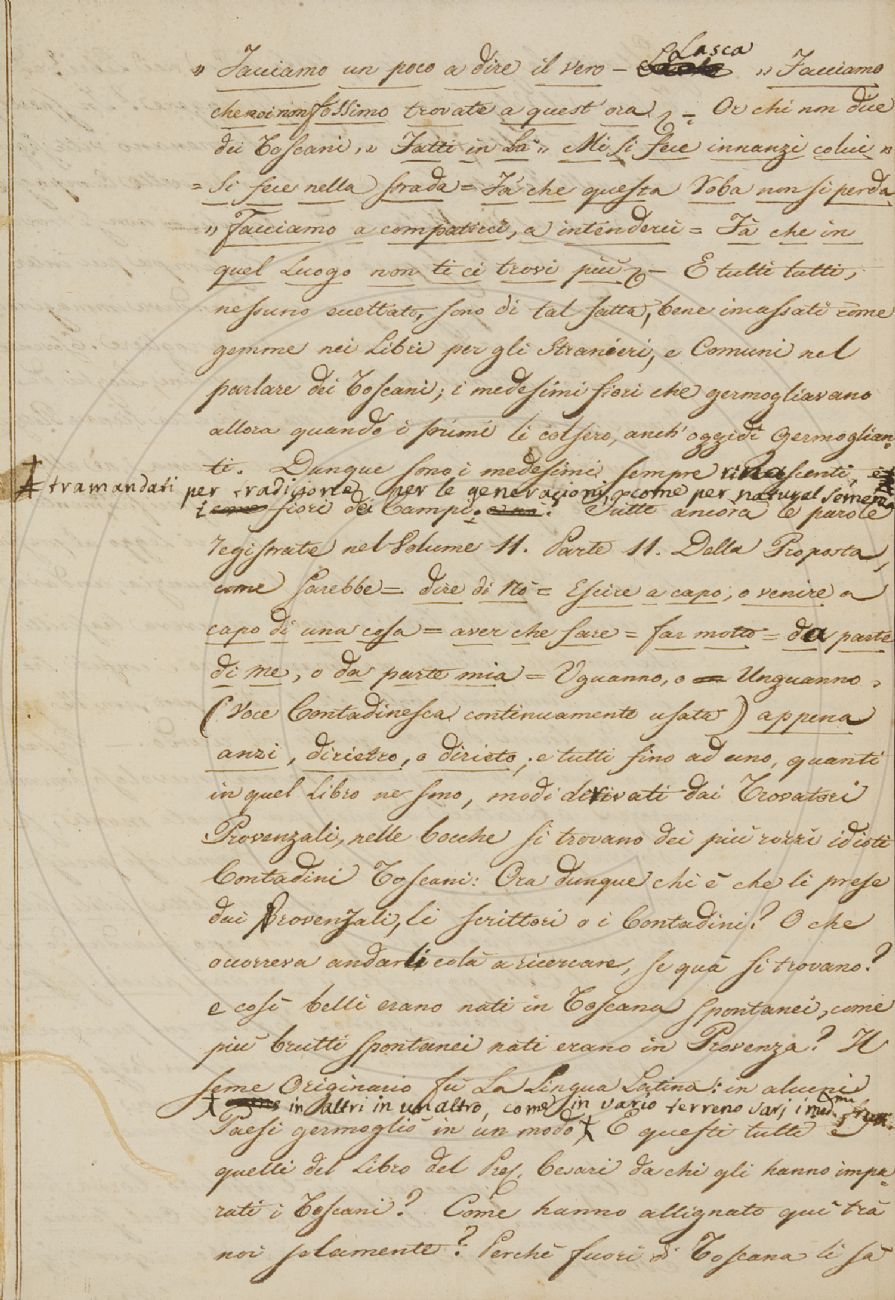 " Facciamo un poco a dire il vero – Lasca " Facciamo
che noi non fossimo trovate a quest' ora, = Or chi non dice
dei Toscani, " Fatti in La " Mi si fece innanzi colui "
= Si fece nella strada = Fà che questa Roba non si perda
" Facciamo a compatirci, a intenderci = Fà che in
quel Luogo non ti ci trovi più – E tutti tutti,
nessuno eccettato, sono di tal fatta, bene incassati come
gemme nei Libri per gli Stranieri, e Comuni nel
parlare dei Toscani; i medesimi fiori che germogliavano
allora quando i primi li colsero, anch' oggidì germoglian-
ti. Dunque sono i medesimi sempre rinascenti, e
tramandati per tradizione, per le generazioni, come per natural semenza
i fiori dei Campi. Tutte ancora le parole
registrate nel Volume 11. Parte 11. Della Proposta,
come sarebbe = dire di Nò = Escire a capo, o venire a
capo di una cosa = aver che fare = far motto = da parte
di me, o da parte mia = Uguanno, o Unguanno,
(Voce Contadinesca continuamente usata) appena
anzi, dirietro, o dirieto, e tutti fino ad uno, quanti
in quel Libro ne sono, modi derivati dai Trovatori
Provenzali, nelle bocche si trovano dei più rozzi idioti
Contadini Toscani: Ora dunque chi è che li prese
dai Provenzali, li scrittori o i Contadini? O che
occorreva andarli colà a ricercare, se quà si trovano?
e così belli erano nati in Toscana spontanei, come
più brutti spontanei nati erano in Provenza? Il
seme Originario fù La Lingua Latina: in alcuni
in altri in un altro, come in vario terreno varj i
Paesi germogliò in un modo E questi tutti e
quelli del Libro del Pres. Cesari da chi gli hanno impa-
rati i Toscani? Come hanno allignato quì trà
noi solamente? Perchè fuori di Toscana li sà